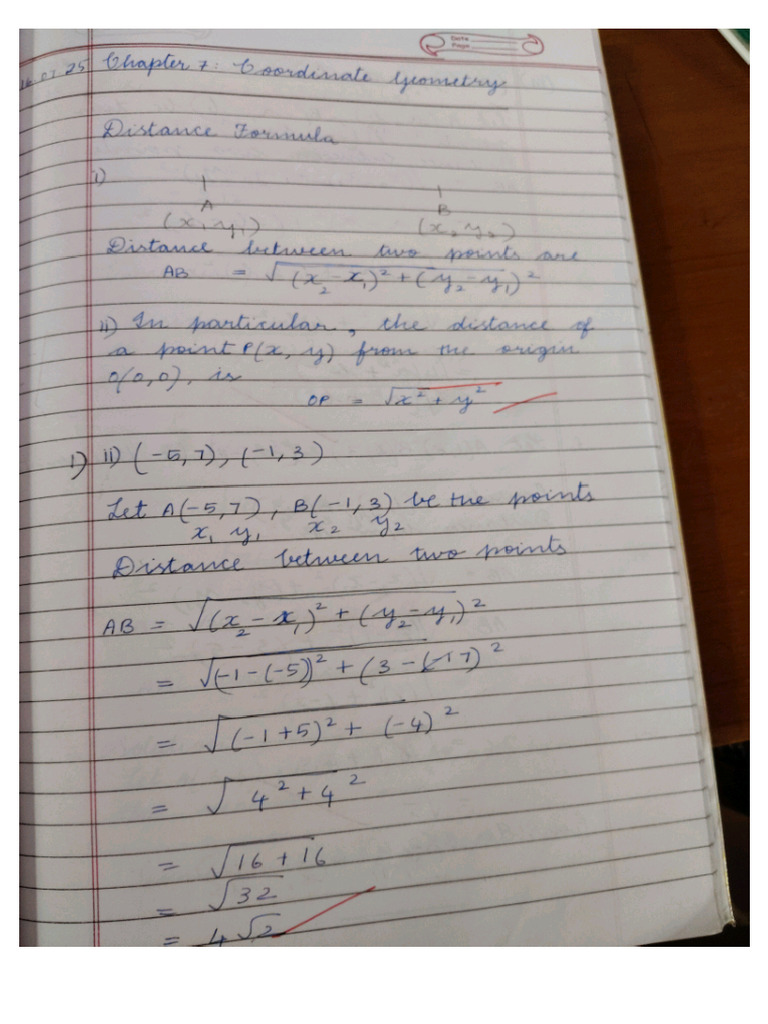 Date
Page
07 25 Chapter 7: Coordinate Geometry
Distance Formula
i)
A B
(x₁ y₁) (x₂ y₂)
Distance between two points are
AB = √(x₂-x₁)² + (y₂-y₁)²
ii) In particular, the distance of
a point P(x, y) from the origin
O(0,0), is
OP = √x² + y²
1) ii) (-5,7), (-1,3)
Let A(-5,7), B(-1,3) be the points
x₁ y₁ x₂ y₂
Distance between two points
AB = √(x₂-x₁)² + (y₂-y₁)²
= √(-1-(-5)² + (3-7)²
= √(-1+5)² + (-4)²
= √4² + 4²
= √16 + 16
= √32
= 4√2